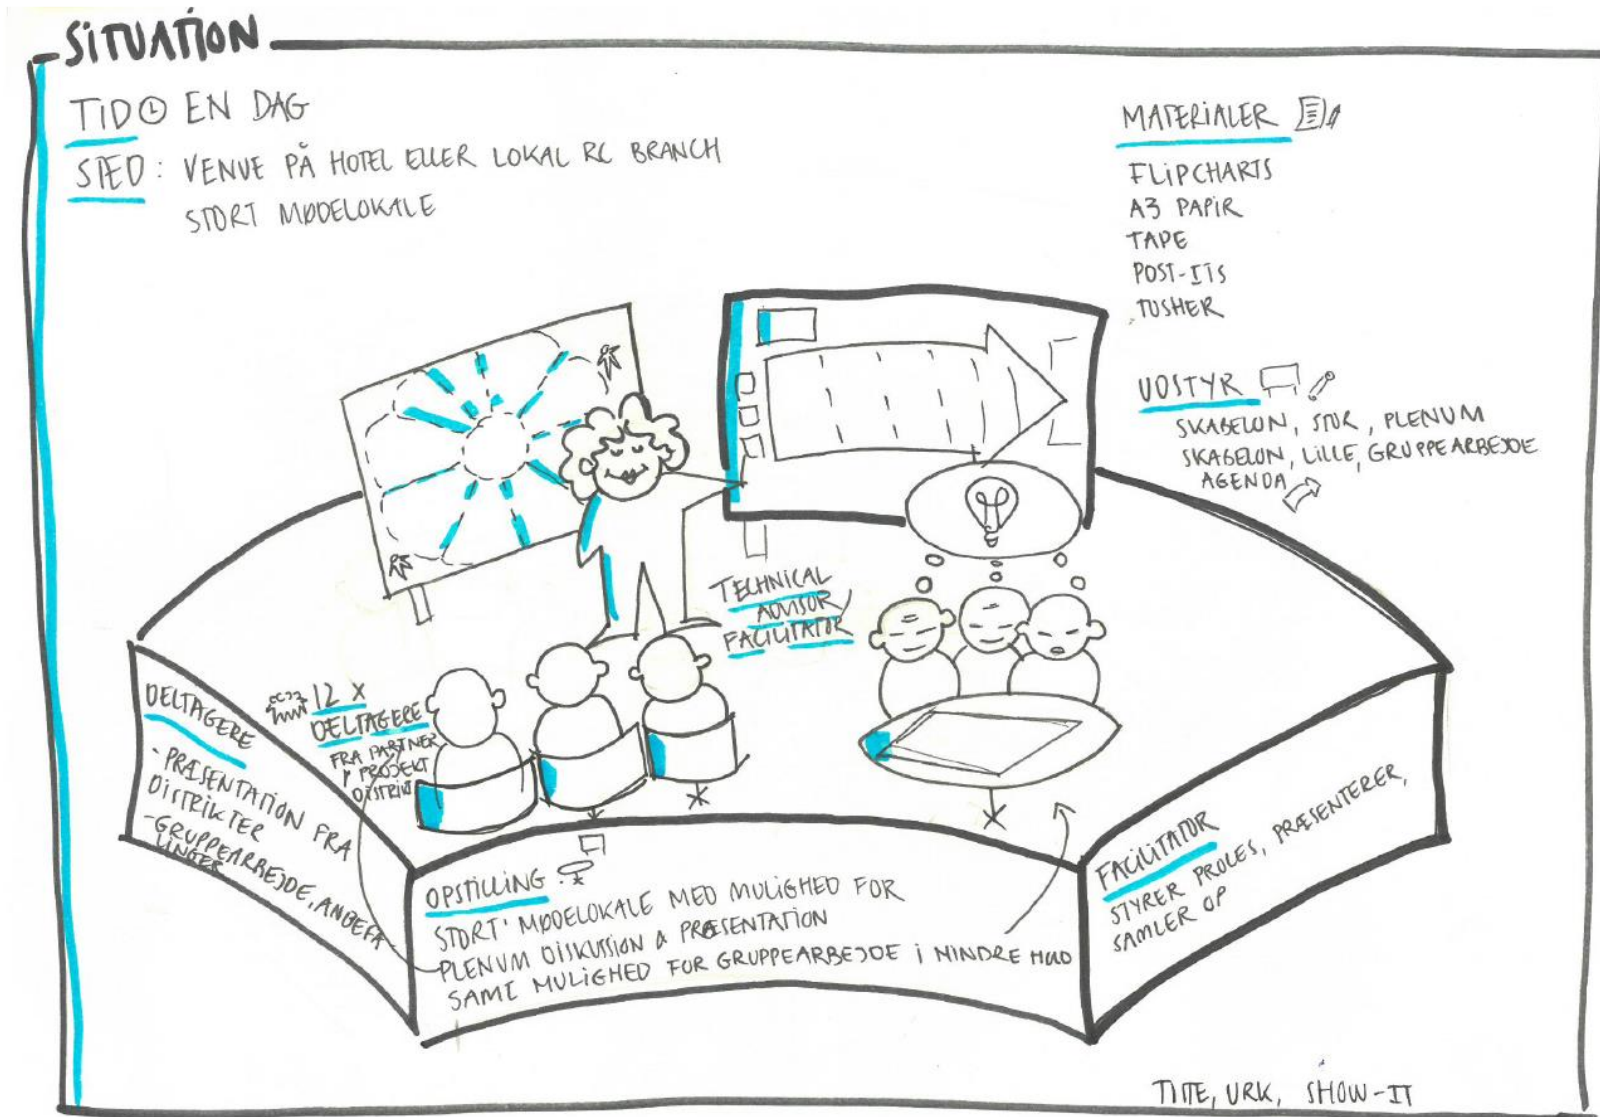 SITUATION
TID EN DAG
STED: VENUE PÅ HOTEL ELLER LOKAL RC BRANCH
STORT MØDELOKALE
MATERIALER
FLIPCHARTS
A3 PAPIR
TAPE
POST-ITS
TUSHER
UDSTYR
SKABELON, STOR, PLENUM
SKABELON, LILLE, GRUPPEARBEJDE
AGENDA
TECHNICAL
ADVISOR/
FACILITATOR
12 X
DELTAGERE
FRA PARTNER
/ PROJEKT
DISTRIKT
DELTAGERE
- PRÆSENTATION FRA
DISTRIKTER
- GRUPPEARBEJDE, ANBEFA
LINGER
OPSTILLING
STORT MØDELOKALE MED MULIGHED FOR
PLENUM DISKUSSION & PRÆSENTATION
SAMT MULIGHED FOR GRUPPEARBEJDE I MINDRE HOLD
FACILITATOR
STYRER PROCES, PRÆSENTERER,
SAMLER OP
URK, SHOW-IT